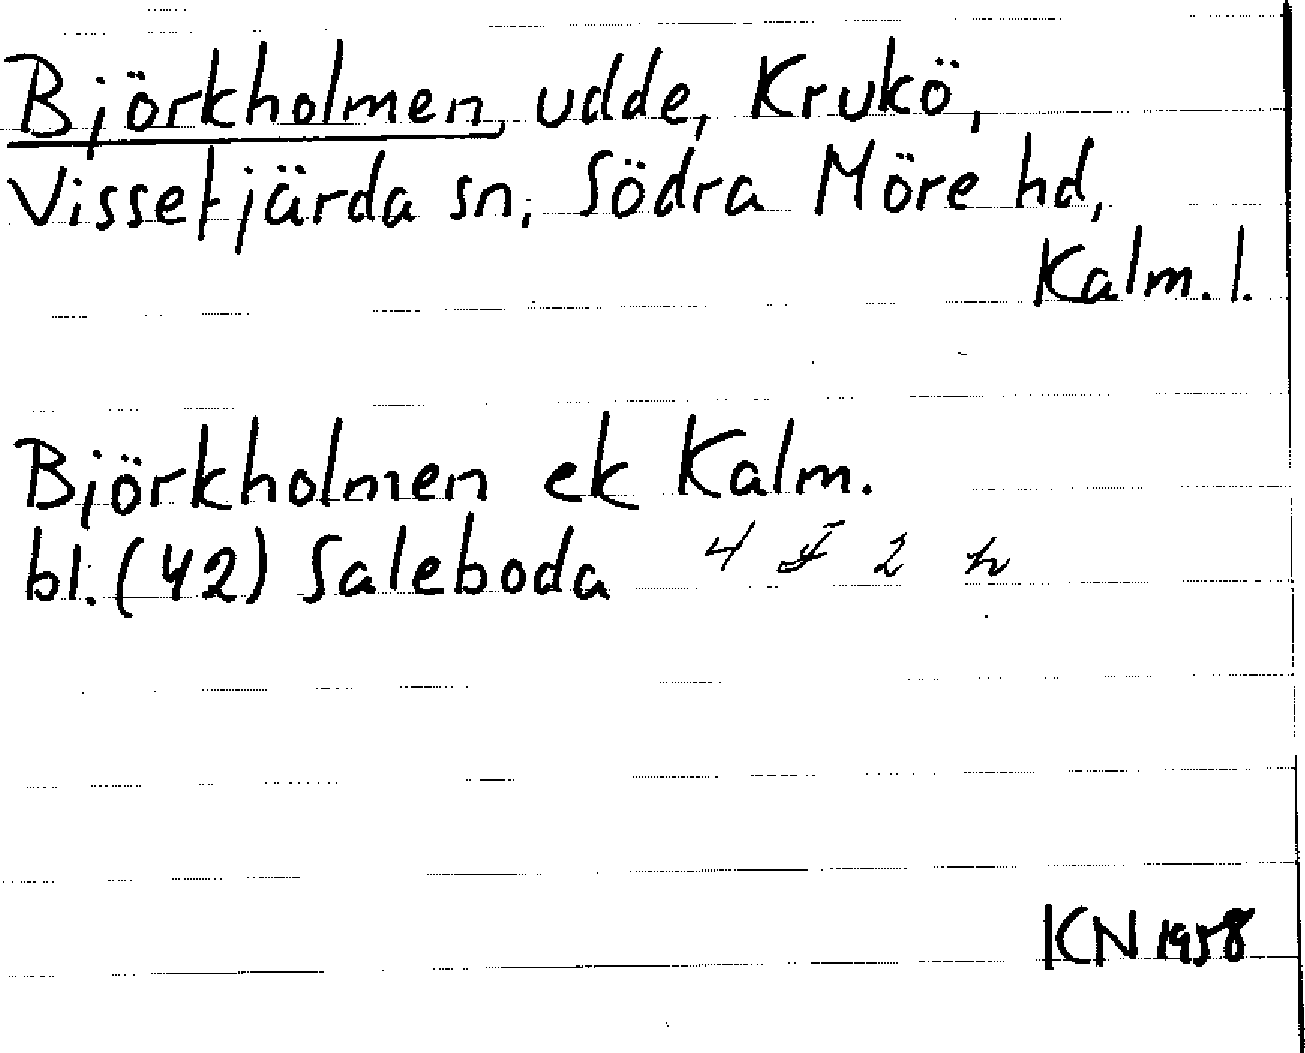 Björkholmen, udde, Krukö,
Vissefjärda sn, Södra Möre hd,
Kalm. l.
Björkholmen ek Kalm.
bl. (42) Saleboda 4 F 2 h
KN 1958